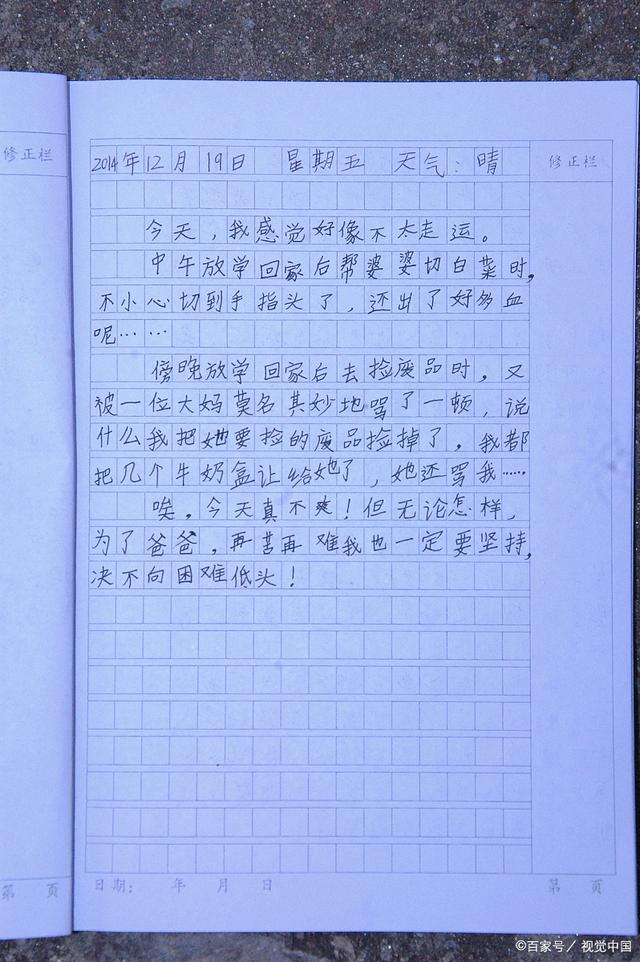 修正栏
2014年12月19日 星期五 天气：晴
修正栏
今天，我感觉好像不太走运。
中午放学回家后帮婆婆切白菜时，
不小心切到手指头了，还出了好多血
呢……
傍晚放学回家后去捡废品时，又
被一位大妈莫名其妙地骂了一顿，说
什么我把她要捡的废品捡掉了，我都
把几个牛奶盒让给她了，她还骂我……
唉，今天真不爽！但无论怎样，
为了爸爸，再苦再难我也一定要坚持，
决不向困难低头！
第 页
日期： 年 月 日
第 页
©百家号／视觉中国